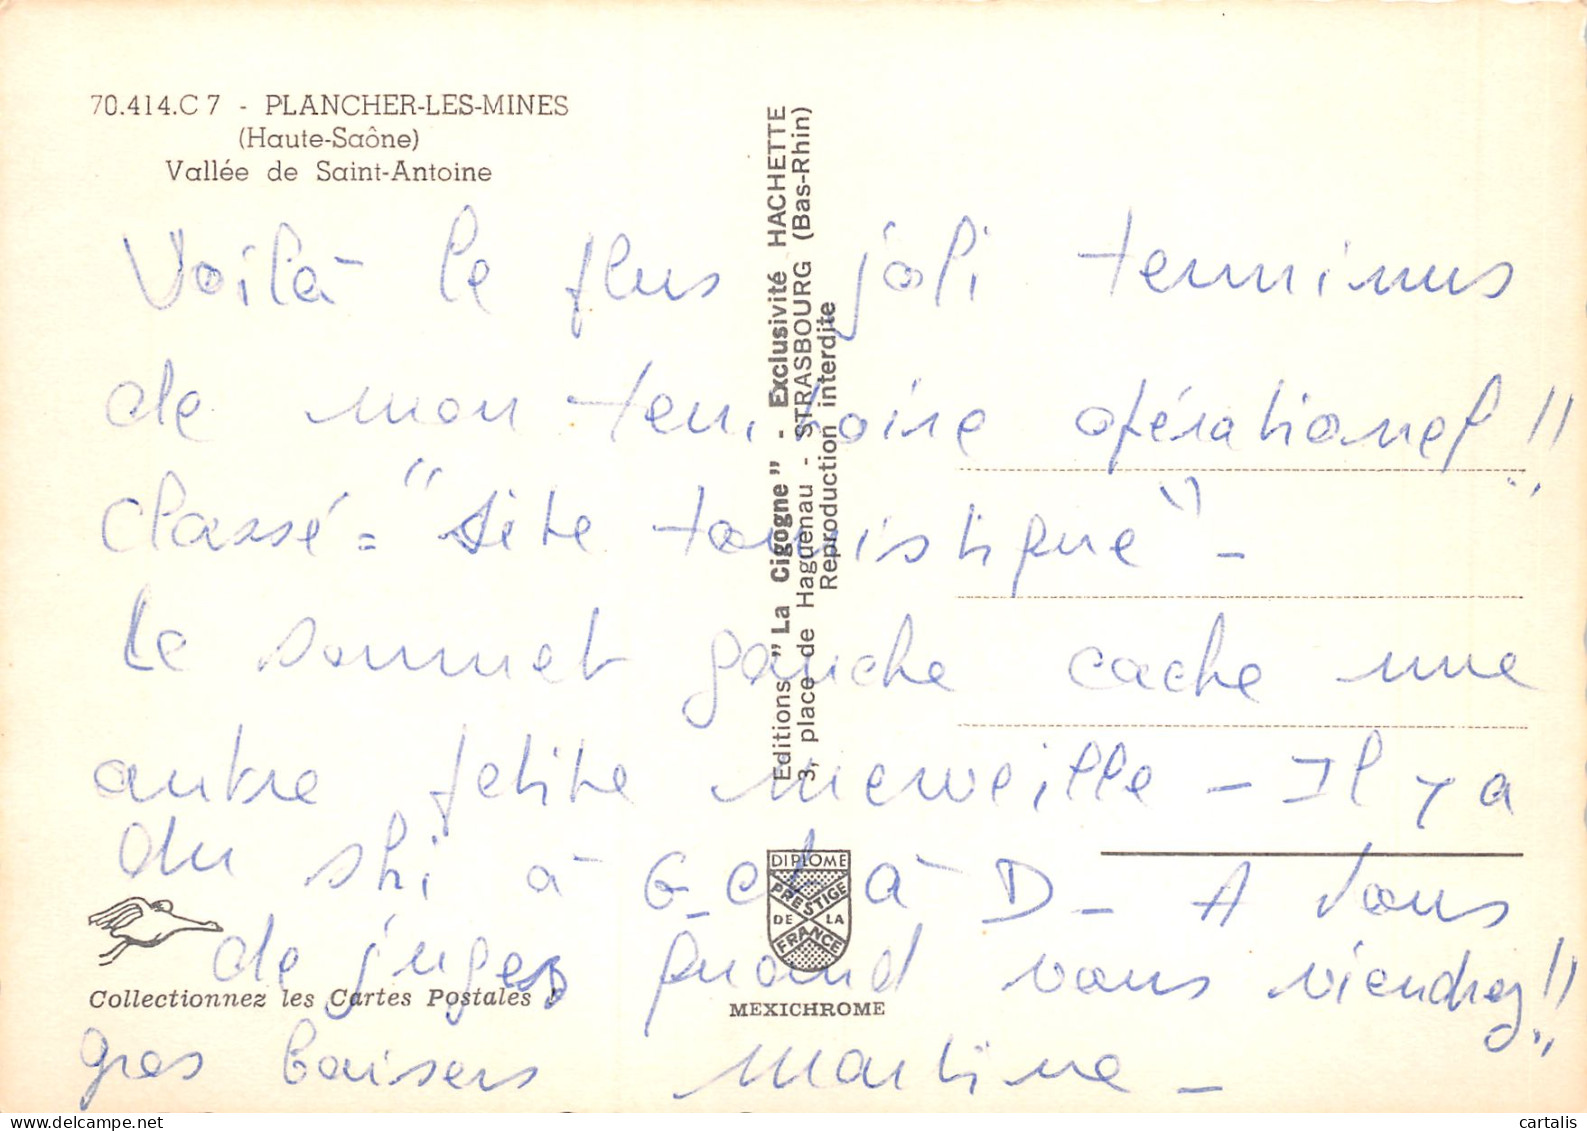 70.414.C 7 - PLANCHER-LES-MINES
(Haute-Saône)
Vallée de Saint-Antoine
Voilà le plus joli terminus
de mon territoire opérationel !!
classé = "site touristique" -
Le sommet gauche cache une
autre petite merveille - Il y a
du ski à G et à D - A vous
de juger quand vous viendrez !!
gros baisers Martine -
Editions "La Cigogne" - Exclusivité HACHETTE
3, place de Haguenau - STRASBOURG (Bas-Rhin)
Reproduction interdite
DIPLOME
PRESTIGE
DE LA
FRANCE
Collectionnez les Cartes Postales !
MEXICHROME
cartalis